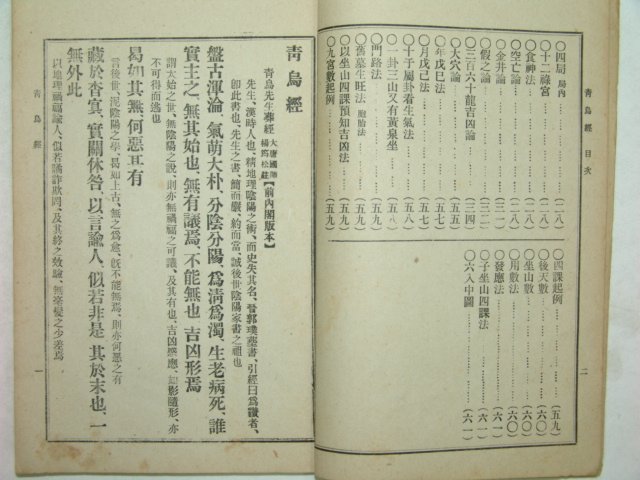 靑烏經 目次
二
○四局 局內 ………(二八)
○十二祿宮 ………(二八)
○食神法 ………(二八)
○空亡論 ………(二八)
○金井論 ………(三一)
○假之論 ………(三二)
○三百六十龍吉凶論 ………(三四)
○大穴論 ………(五五)
○年戌巳法 ………(五七)
○月戌己法 ………(五七)
○十于屬卦看生氣法 ………(五八)
○一卦三山又有黃泉坐 ………(五八)
○門路法 ………(五九)
○舊墓生旺法 胞胎法 ………(五九)
○以坐山四課預知吉凶法 ………(五九)
○九宮數起例 ………(五九)
○四課起例 ………(五九)
○後天數 ………(六〇)
○坐山數 ………(六〇)
○用數法 ………(六〇)
○發應法 ………(六一)
○子坐山四課法 ………(六一)
○六入中圖 ………(六一)
靑烏經
靑烏先生葬經 大唐國師 楊筠松註【前內閣版本】
先生、漢時人也、精地理陰陽之術、而史失其名、晉郭璞葬書、引經曰爲證者、
卽此書也、先生之書、簡而嚴、約而當、誠後世陰陽家書之祖也
盤古渾淪、氣萌大朴、分陰分陽、爲淸爲濁、生老病死、誰
實主之、無其始也、無有議焉、不能無也、吉凶形焉
謂太始之世、無陰陽之說、則亦無禍福之可議、及其有也、吉凶感應、如影隨形、亦
不可得而逃也
曷如其無、何惡耳有
言後世、泥陰陽之學、曷如上古、無之爲愈、旣不能無焉、則亦何惡之有
藏於杳冥、實關休咎、以言諭人、似若非是、其於末也、一
無外此
以地理禍福諭人、似若譎詐欺罔、及其終之效驗、無毫髮之少差焉
靑烏經
一